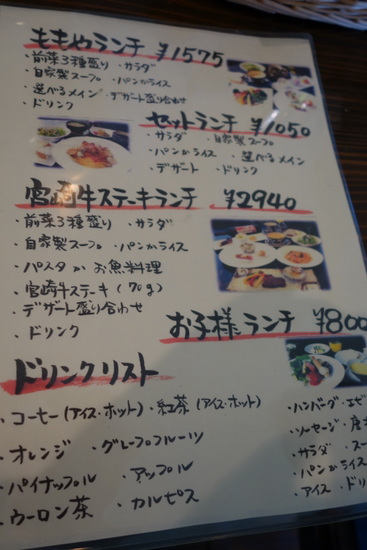 ももやランチ ¥1575
・前菜3種盛り ・サラダ
・自家製スープ ・パンかライス
・選べるメイン ・デザート盛り合わせ
・ドリンク
セットランチ ¥1050
・サラダ ・自家製スープ
・パンかライス ・選べるメイン
・デザート ・ドリンク
宮崎牛ステーキランチ ¥2940
・前菜3種盛り ・サラダ
・自家製スープ ・パンかライス
・パスタか お魚料理
・宮崎牛ステーキ (70g)
・デザート盛り合わせ
・ドリンク
お子様ランチ ¥800
・ハンバーグ・エビ
・ソーセージ・唐
・サラダ ・スー
・パンかライス
・アイス ・ドリ
ドリンクリスト
・コーヒー(アイス・ホット) ・紅茶 (アイス・ホット)
・オレンジ ・グレープフルーツ
・パイナップル ・アップル
・ウーロン茶 ・カルピス